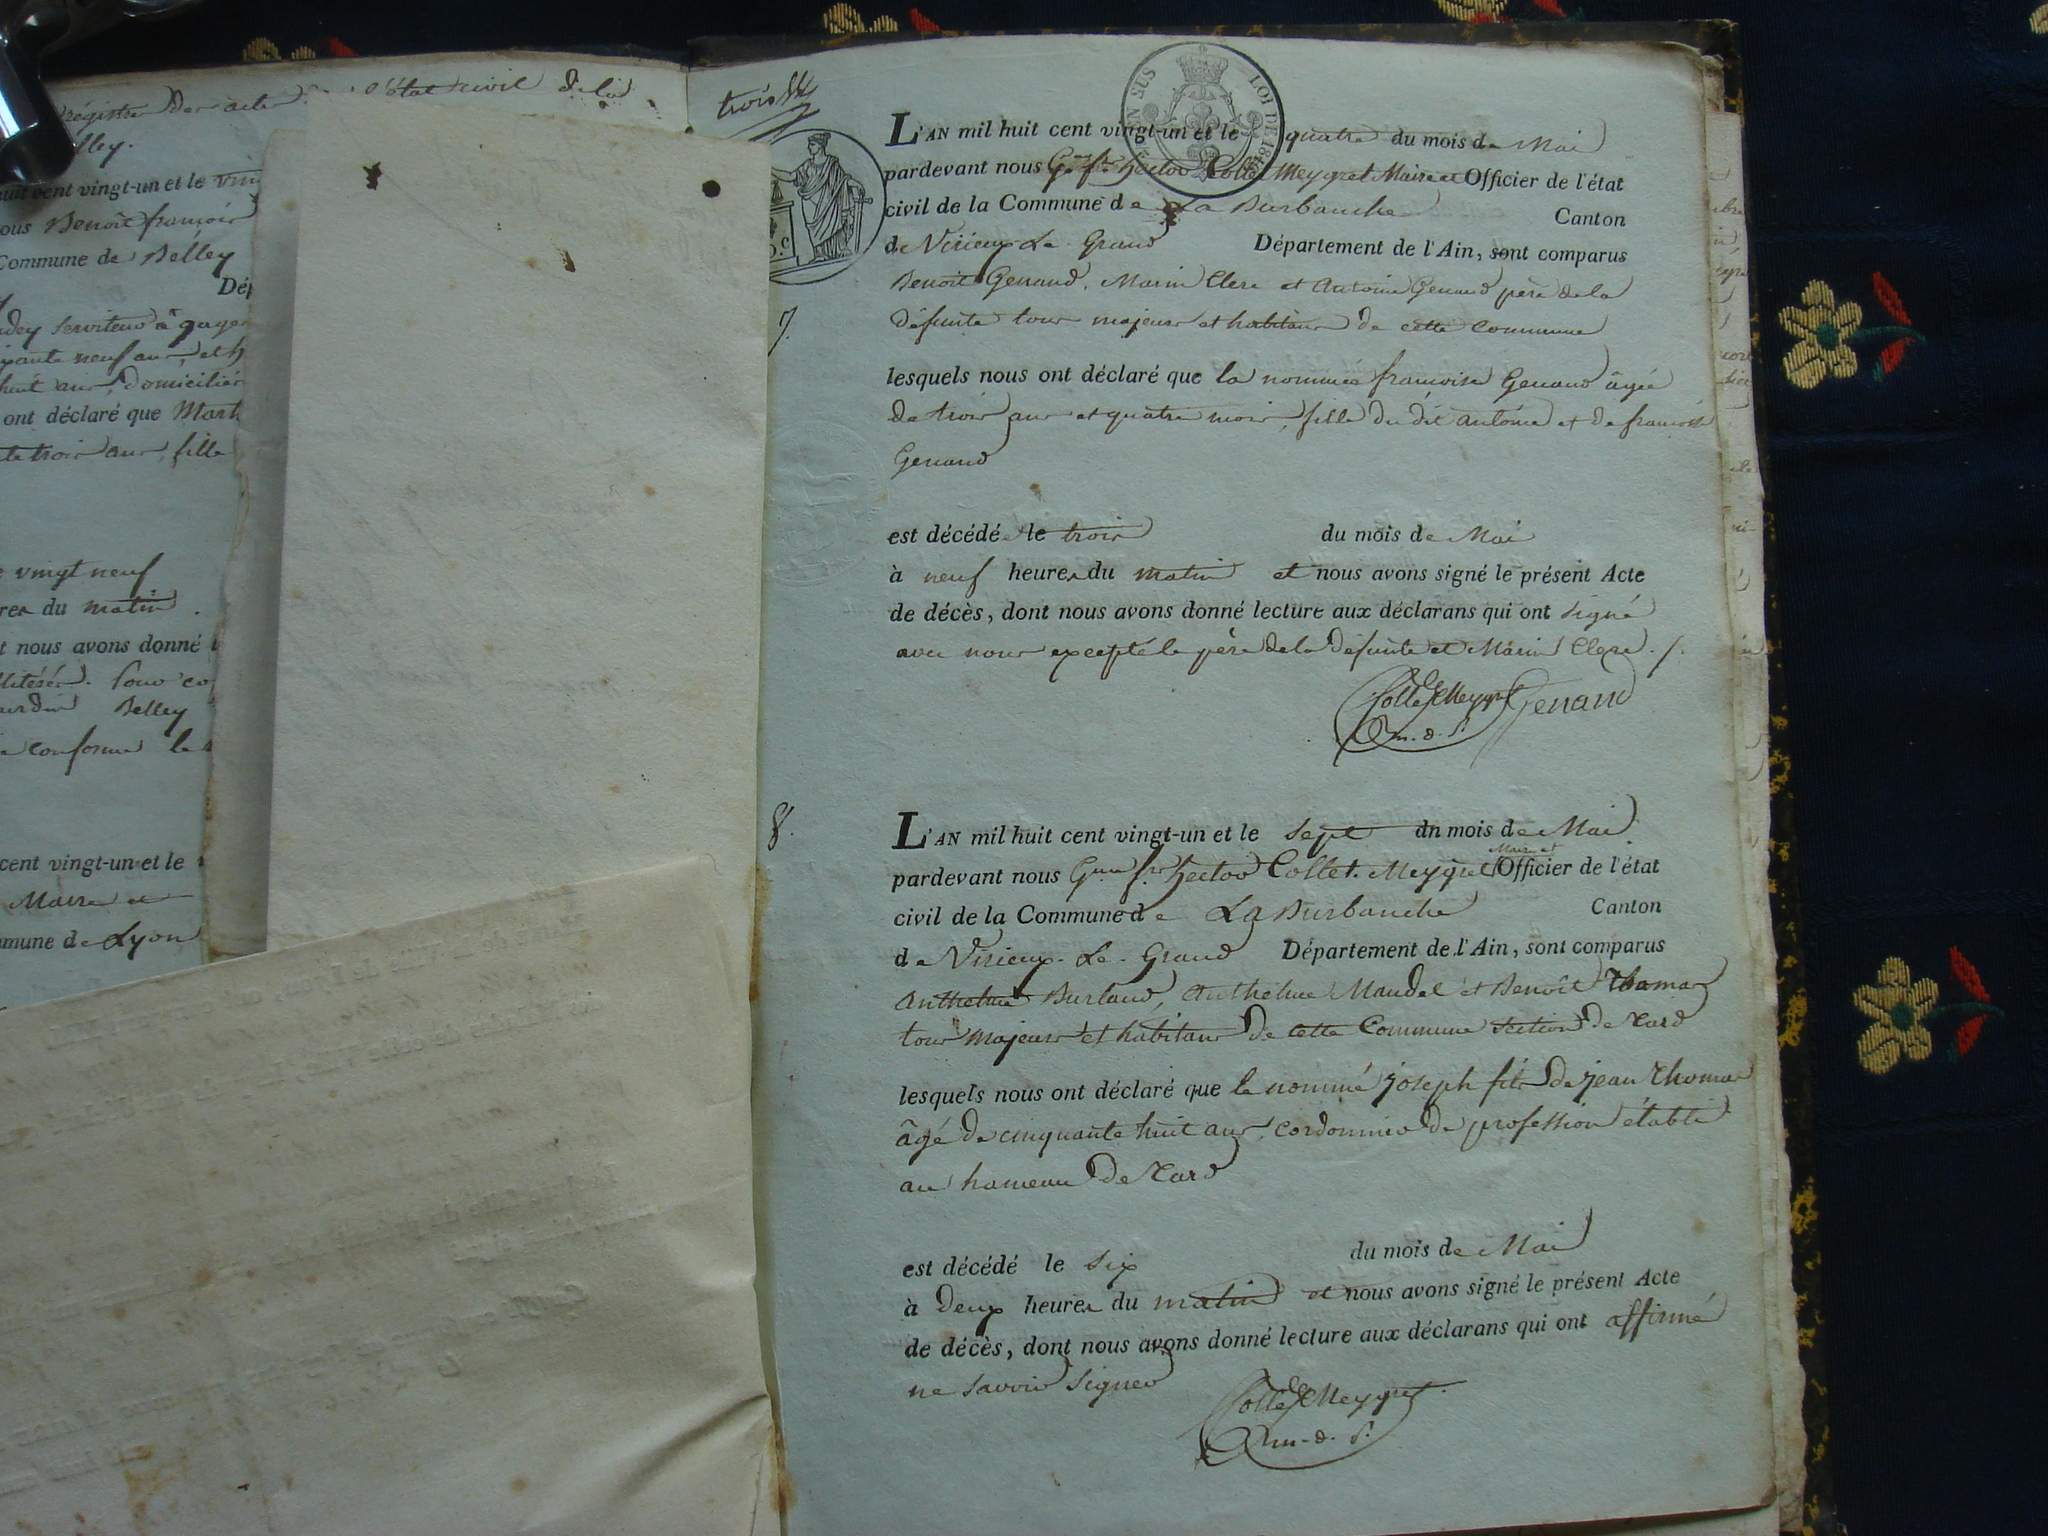 régistre des actes état civil de la
lley.
huit cent vingt-un et le
ous Benoît françois
Commune de Belley
serviteur à gages
neuf ans, et
huit ans, domiciliés
ont déclaré que
trois ans, fille
vingt neuf
res du matin.
t nous avons donné
Belley
conforme le
cent vingt-un et le
Maire et
mmune de Lyon
trois
EN SUS LOI DE 18
L'AN mil huit cent vingt-un et le quatre du mois de Mai
pardevant nous hector Collet Meygret Maire et Officier de l'état
civil de la Commune de La Burbanche Canton
de Virieux-Le-Grand Département de l'Ain, sont comparus
Benoît Genaud, Marin Clerc et Antoine Genaud père de la
7.
défunte tous majeurs et habitans de cette commune
lesquels nous ont déclaré que la nommée françoise Genaud âgée
de trois ans et quatre mois, fille du dit antoine et de françoise
Genaud
est décédée le trois du mois de Mai
à neuf heures du matin et nous avons signé le présent Acte
de décès, dont nous avons donné lecture aux déclarans qui ont signé
avec nous excepté le père de la défunte et Marin Clerc ./.
Collet Meygret Genaud
8.
L'AN mil huit cent vingt-un et le sept du mois de Mai
Maire et
pardevant nous hector Collet. Meygret Officier de l'état
civil de la Commune de La Burbanche Canton
de Virieux-Le-Grand Département de l'Ain, sont comparus
Anthelme Burtaud, Anthelme Maudel et Benoît Thomas
tous majeurs et habitans de cette Commune section de Tard
lesquels nous ont déclaré que le nommé joseph fils de jean Thomas
âgé de cinquante huit ans, cordonnier de profession établi
au hameau de Tard
est décédé le six du mois de Mai
à deux heures du matin et nous avons signé le présent Acte
de décès, dont nous avons donné lecture aux déclarans qui ont affirmé
ne savoir signer
Collet Meygret